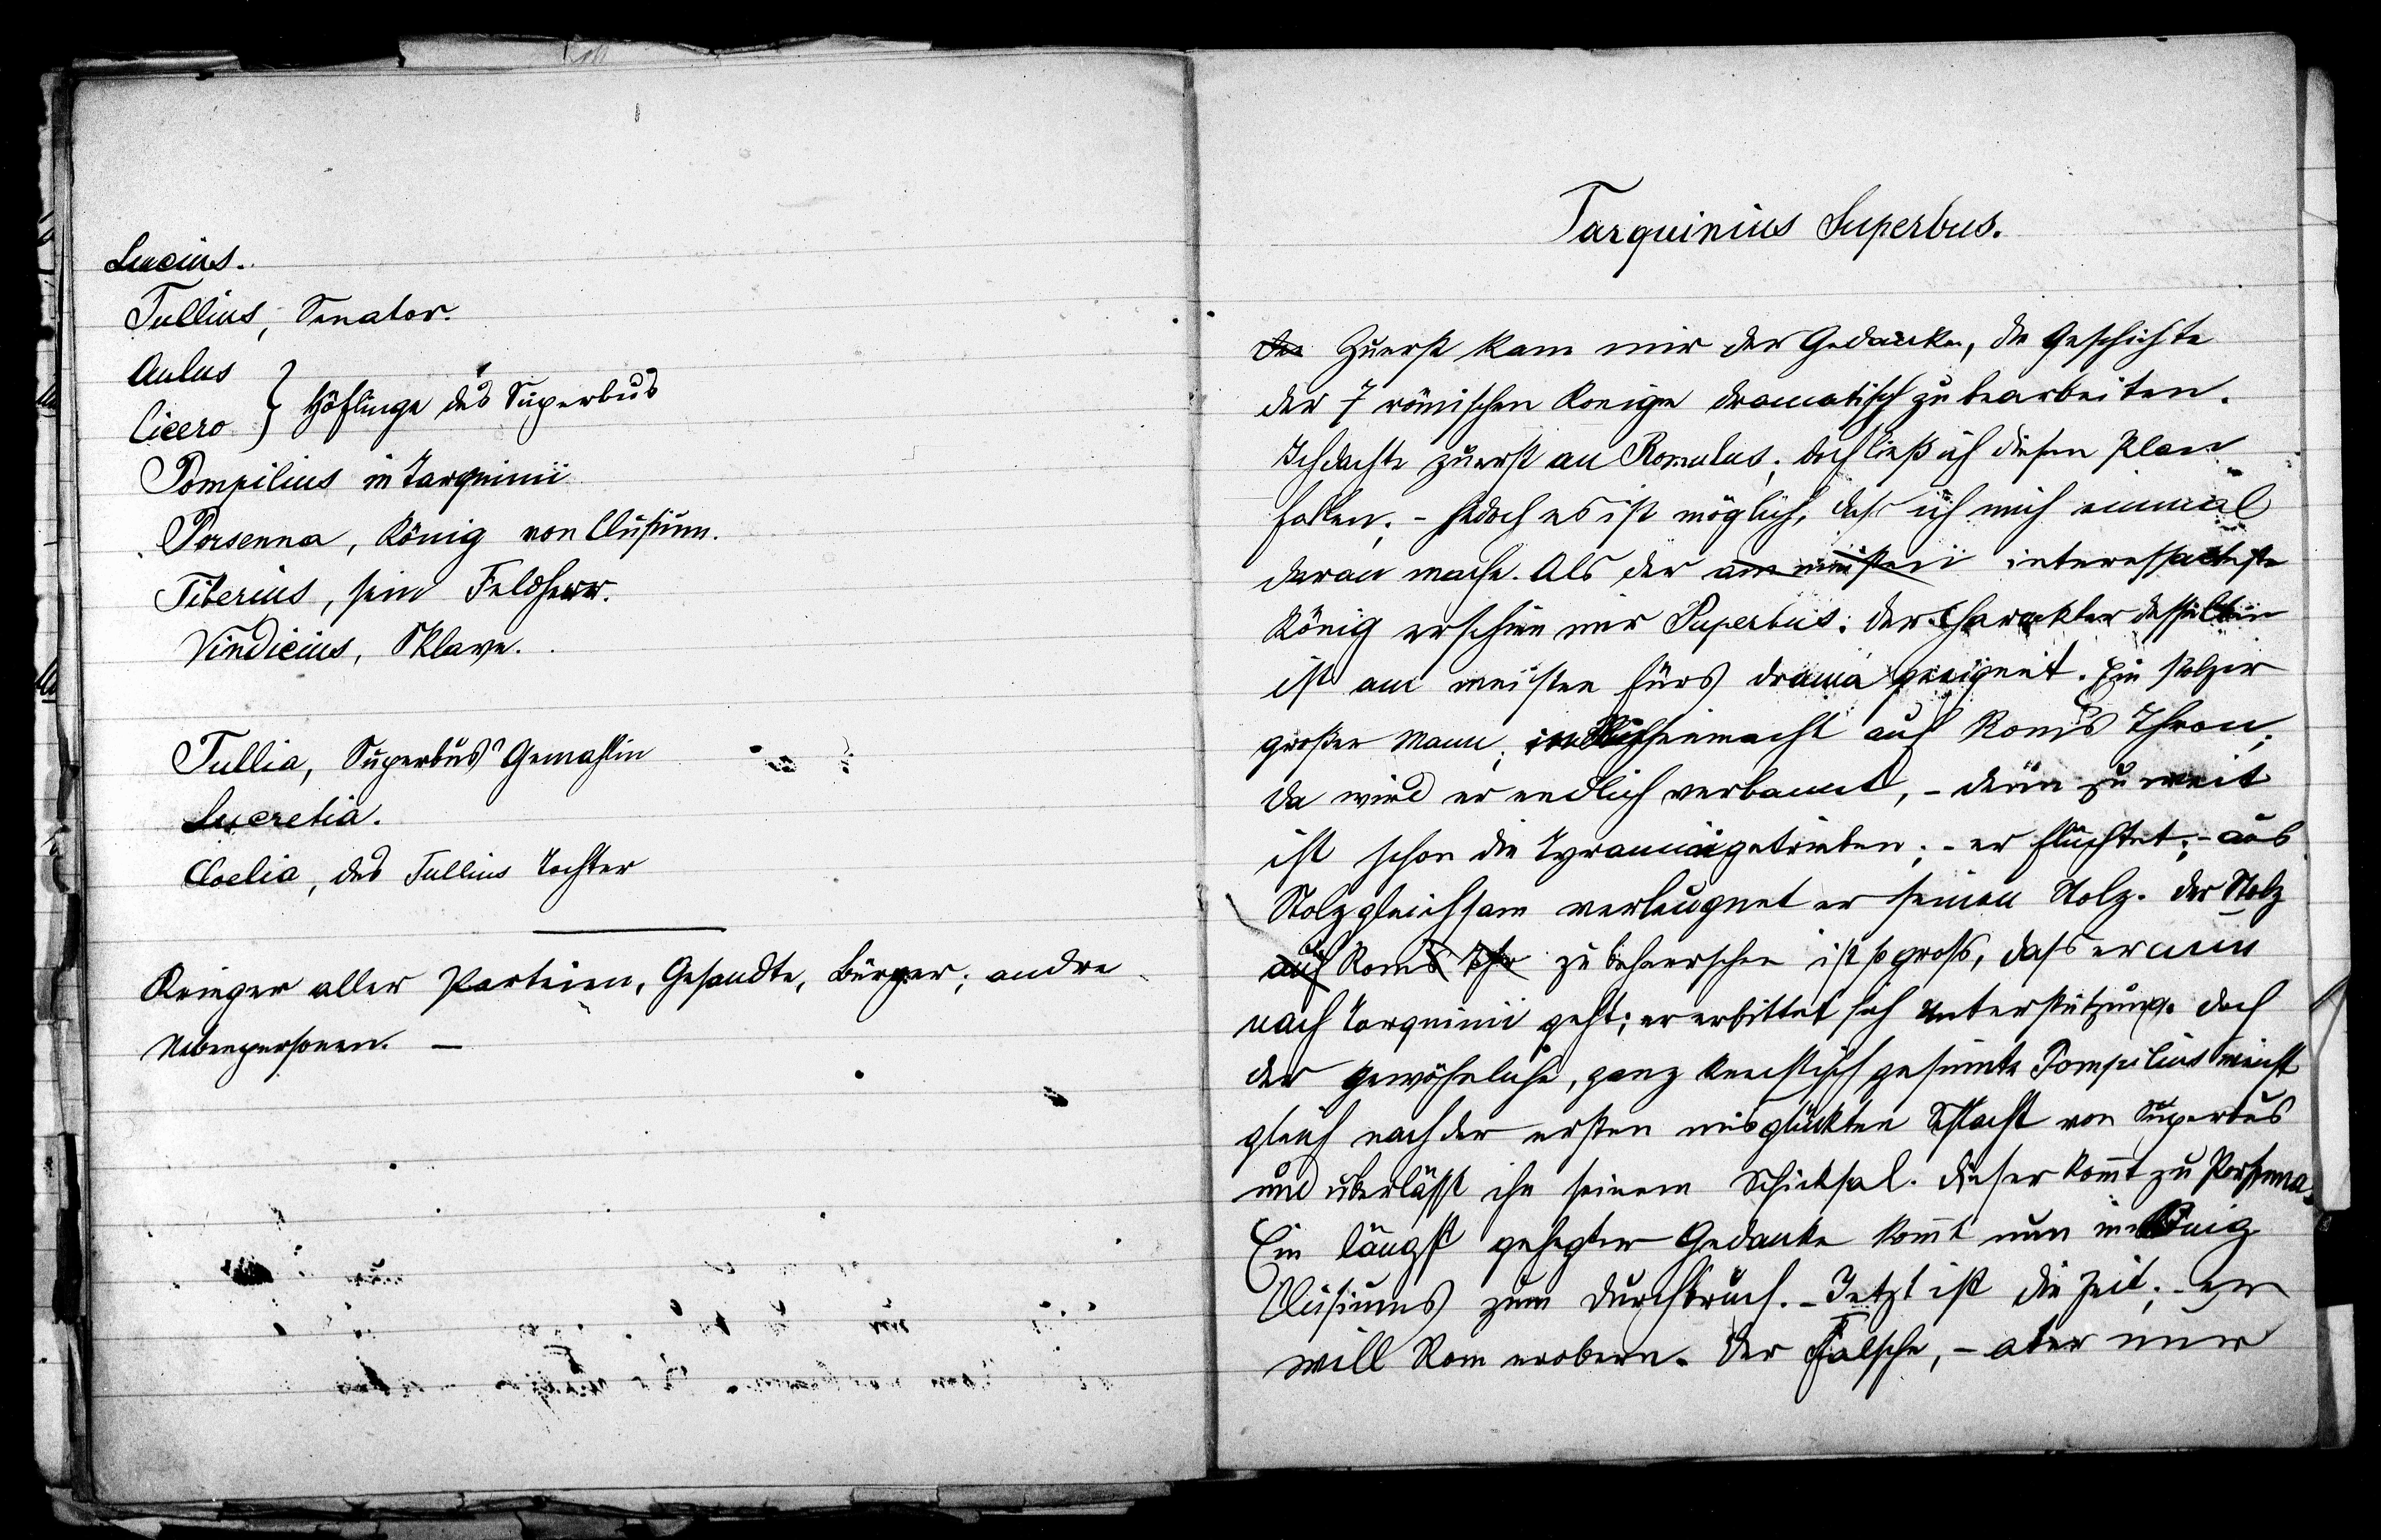 Lucius.
Tullius, Senator.
Aulus
Cicero } Höflinge des Superbus
Pompilius in Tarquinii
Porsenna, König von Clusium.
Tiberius, sein Feldherr.
Vindicius, Sklave.
Tullia, Superbus' Gemahlin
Lucretia.
Cloelia, des Tullius Tochter
Krieger aller Parteien, Gesandte, Bürger; andre
Nebenpersonen. —
Tarquinius Superbus.
Zuerst kam mir der Gedanke, die Geschichte
der 7 römischen Könige dramatisch zu bearbeiten.
Ich dachte zuerst an Romulus; doch ließ ich diesen Plan
fallen; - jedoch es ist möglich, dass ich mich einmal
daran mache. Als der am meisten interessanteste
König erschien mir Superbus; der Charakter desselben
ist am meisten fürs Drama geeignet. Ein stolzer
großer Mann; auf Roms Thron;
da wird er endlich verbannt, - denn zu weit
ist schon die Tyrannei getrieben; - er flüchtet; - aus
Stolz gleichsam verleugnet er seinen Stolz. Der Stolz
auf Roms Thr zu beherrschen ist so gross, dass er nun
nach Tarquinii geht; er erbittet sich Unterstützung. Doch
der gewöhnliche, ganz knechtisch gesinnte Pompilius weicht
gleich nach der ersten misglückten Schlacht von Superbus
und überlässt ihn seinem Schicksal. Dieser kom̄t zu Porsenna.
Ein längst gehegter Gedanke kom̄t nun im König
Clusiums zum Durchbruch. - Jetzt ist die Zeit; - er
will Rom erobern. Der Falsche, - aber nur